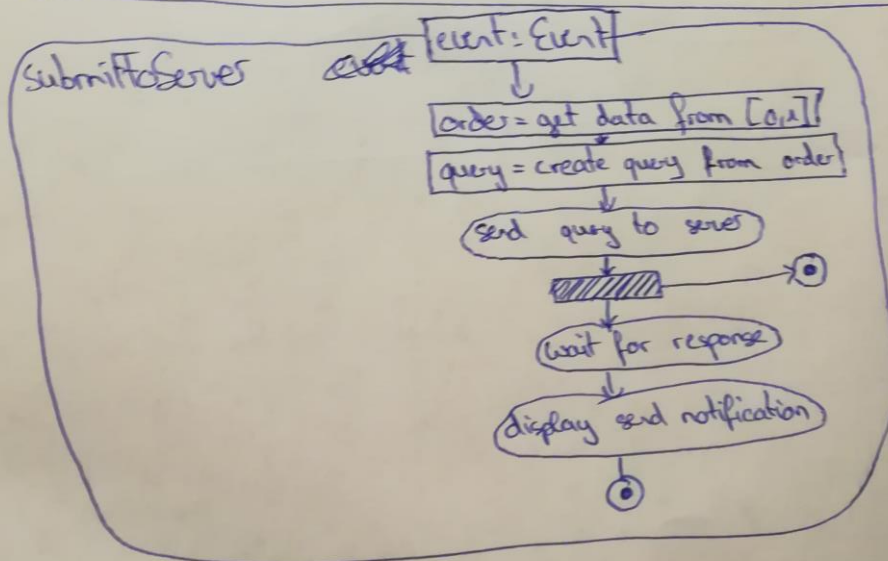 submitToServer
event: Event
order = get data from
query = create query from order
send query to server
wait for response
display send notification